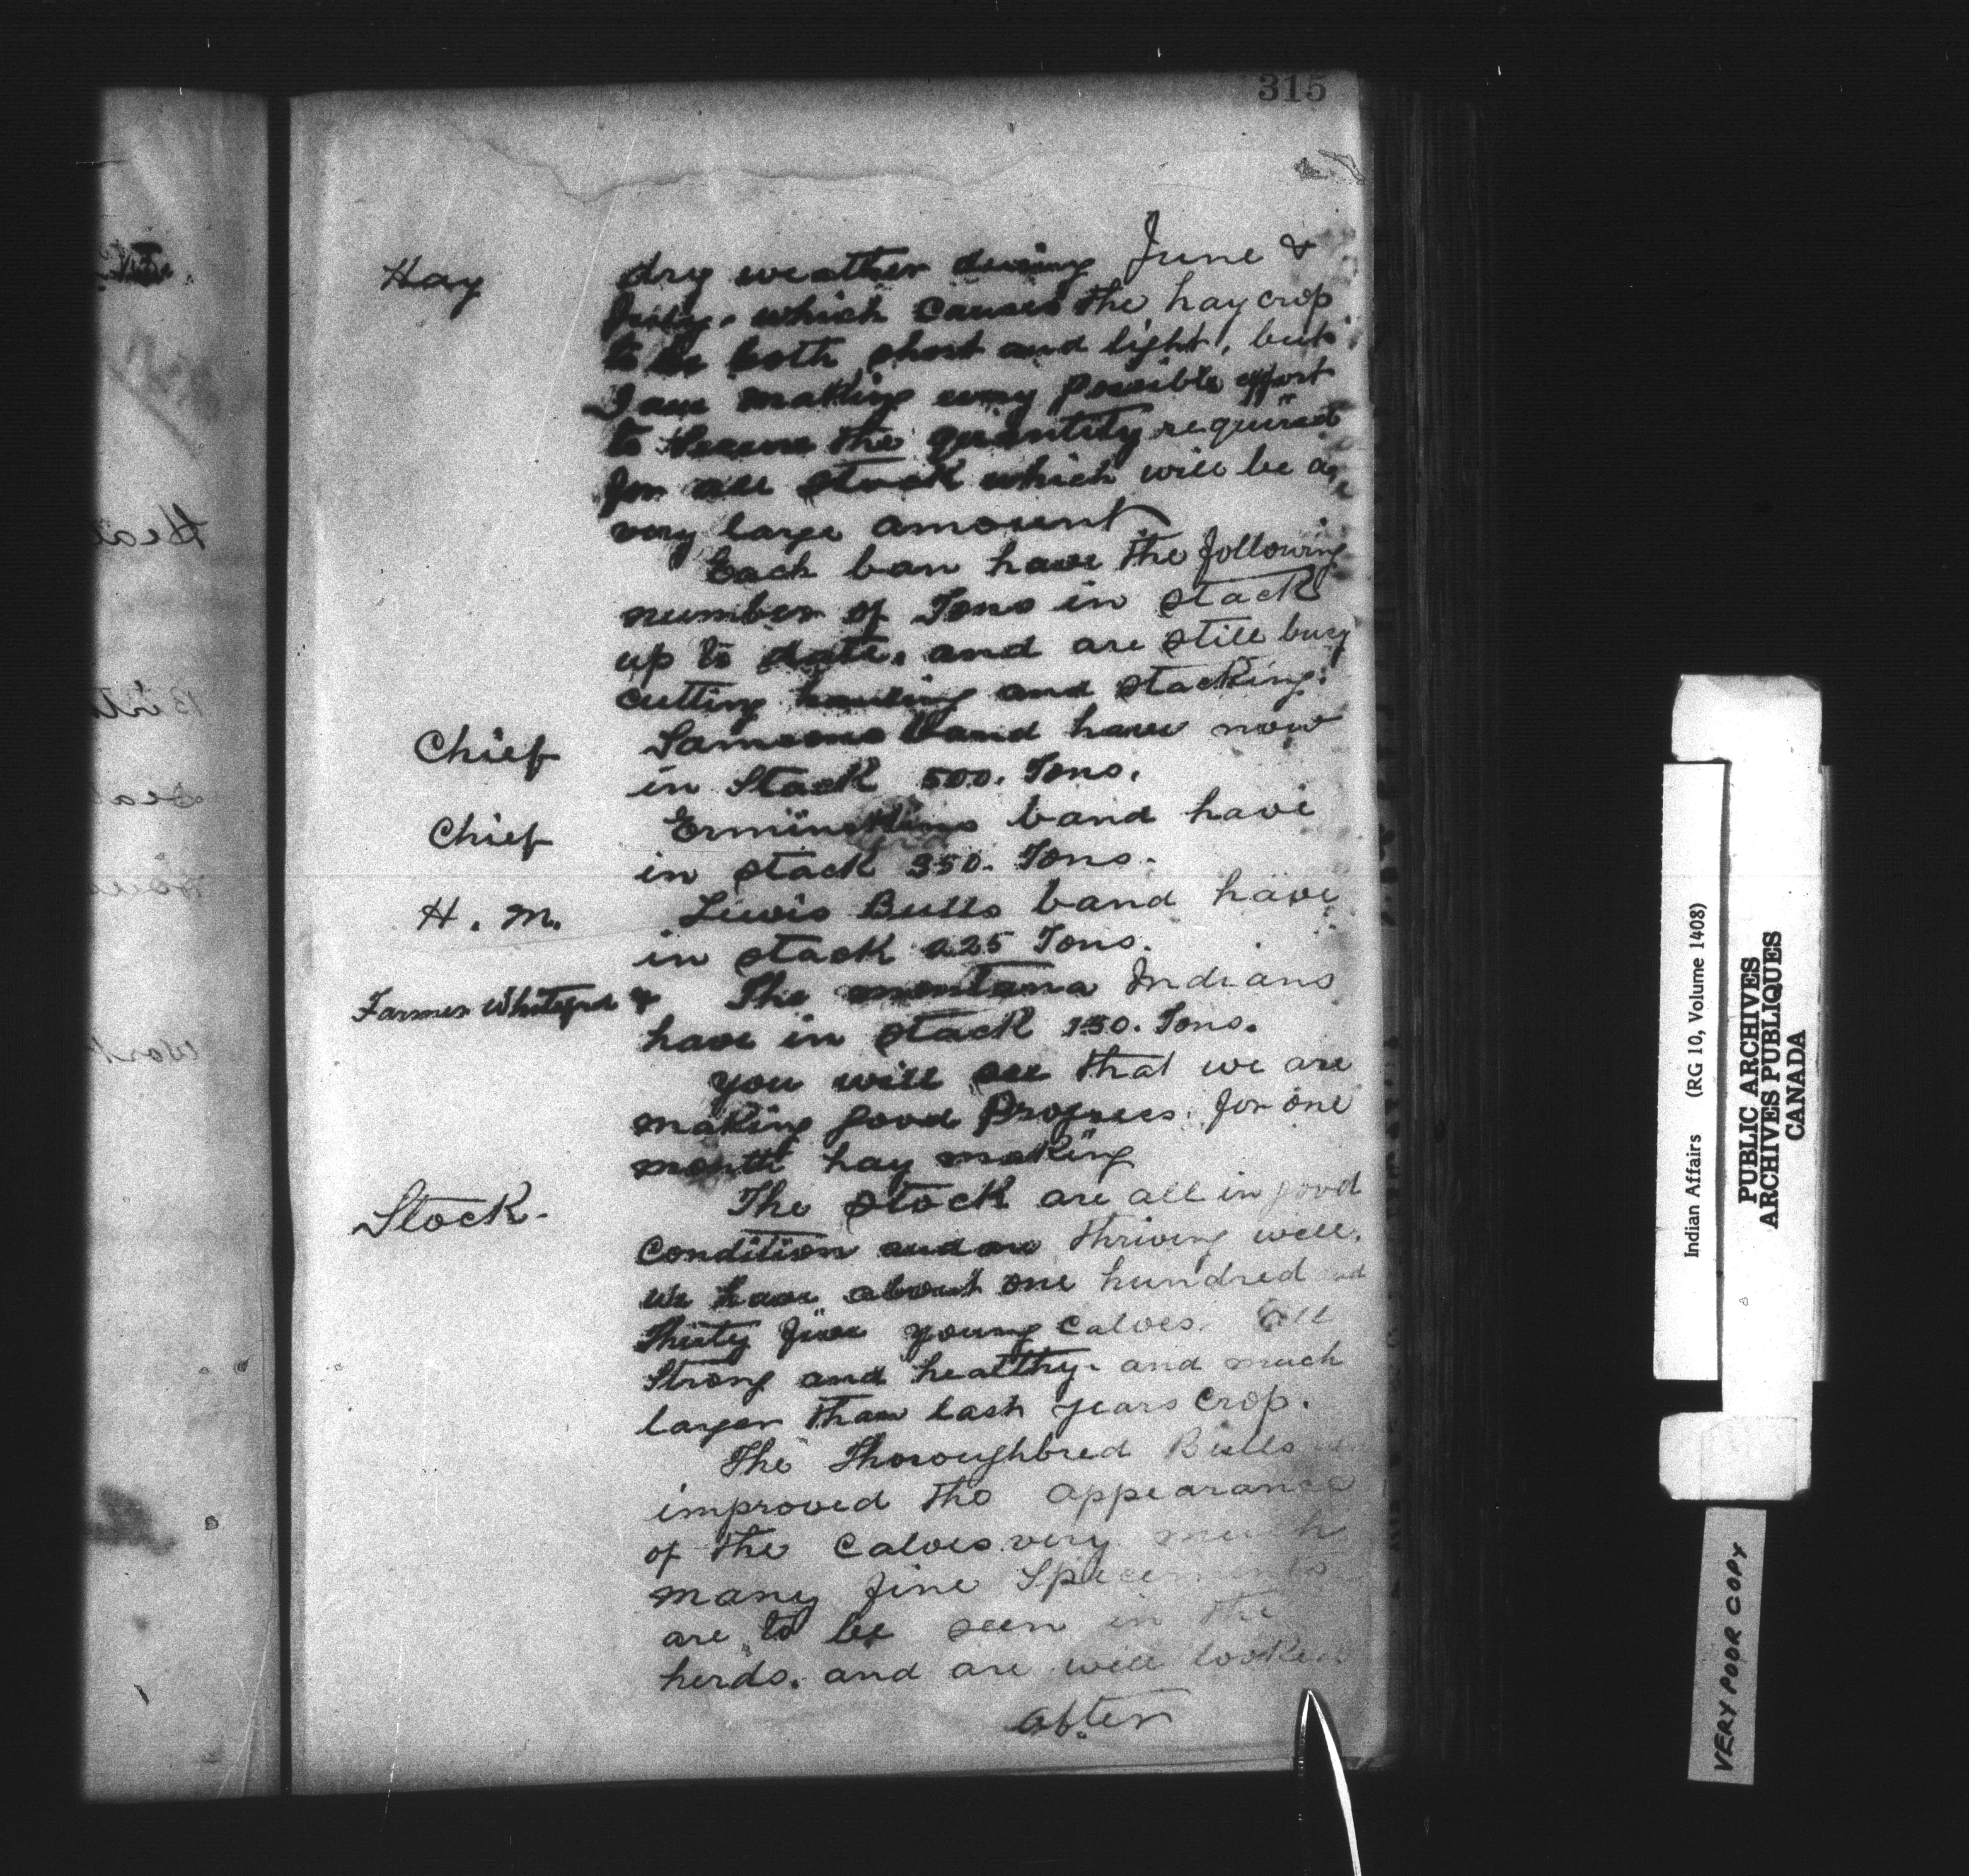 315
Hay dry weather during June &
July. which causes the hay crop
to be both short and light, but
I am making every possible effort
to secure the quantity required
for all stock which will be a
very large amount
Each ban have the following
number of Tons in stack
up to date. and are still busy
cutting hauling and stacking.
Chief Samsons band have now
in Stack 500. Tons.
Chief Ermineskins band have
in stack 350. Tons.
H. M. Liewis Bulls band have
in stack 225 Tons.
Farmer Whiteford & The montana Indians
have in stack 150. Tons.
you will see that we are
making good Progress for one
month hay making
Stock. The stock are all in good
Condition and are thriving well.
we have about one hundred and
Thirty five young Calves. all
Strong and healthy. and much
larger than last years Crop.
The Thoroughbred Bulls
improved the appearance
of the Calves very much
many fine Specements
are to be seen in the
herds. and are well looked
after
Indian Affairs (RG 10, Volume 1408)
PUBLIC ARCHIVES
ARCHIVES PUBLIQUES
CANADA
VERY POOR COPY